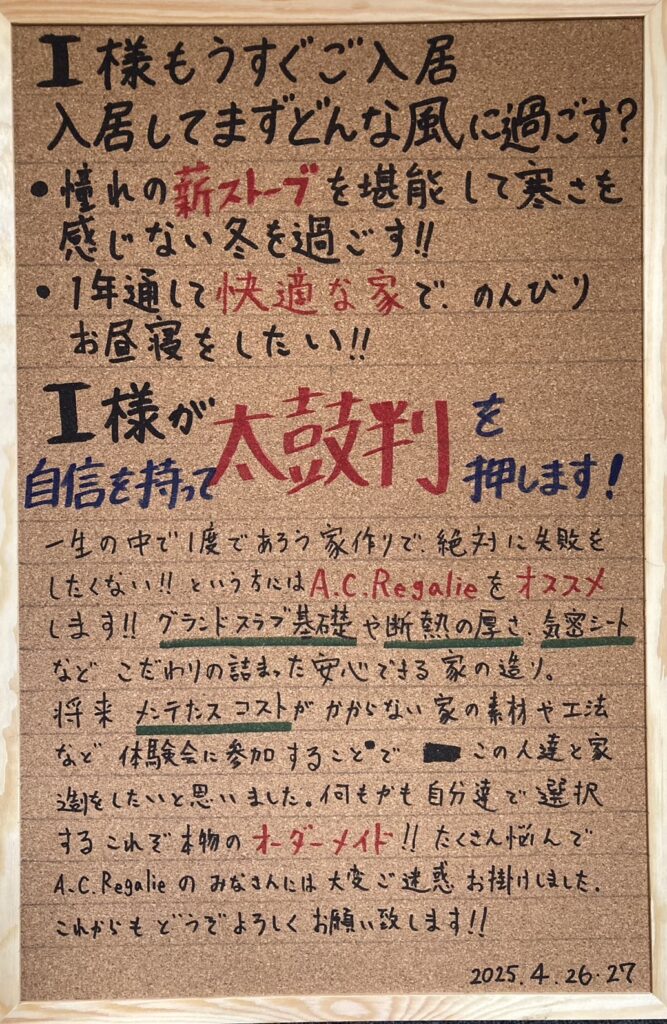 I様もうすぐご入居
入居してまずどんな風に過ごす?
・憧れの薪ストーブを堪能して寒さを
感じない冬を過ごす!!
・1年通して快適な家で、のんびり
お昼寝をしたい!!
I様が太鼓判を
自信を持って押します!
一生の中で1度であろう家作りで、絶対に失敗を
したくない!!という方にはA.C.Regalieをオススメ
します!!グランドスラブ基礎や断熱の厚さ、気密シート
などこだわりの詰まった安心できる家の造り。
将来メンテナンスコストがかからない家の素材や工法
など体験会に参加することで この人達と家
造りをしたいと思いました。何もかも自分達で選択
するこれぞ本物のオーダーメイド!!たくさん悩んで
A.C.Regalieのみなさんには大変ご迷惑お掛けしました。
これからもどうぞよろしくお願い致します!!
2025.4.26・27